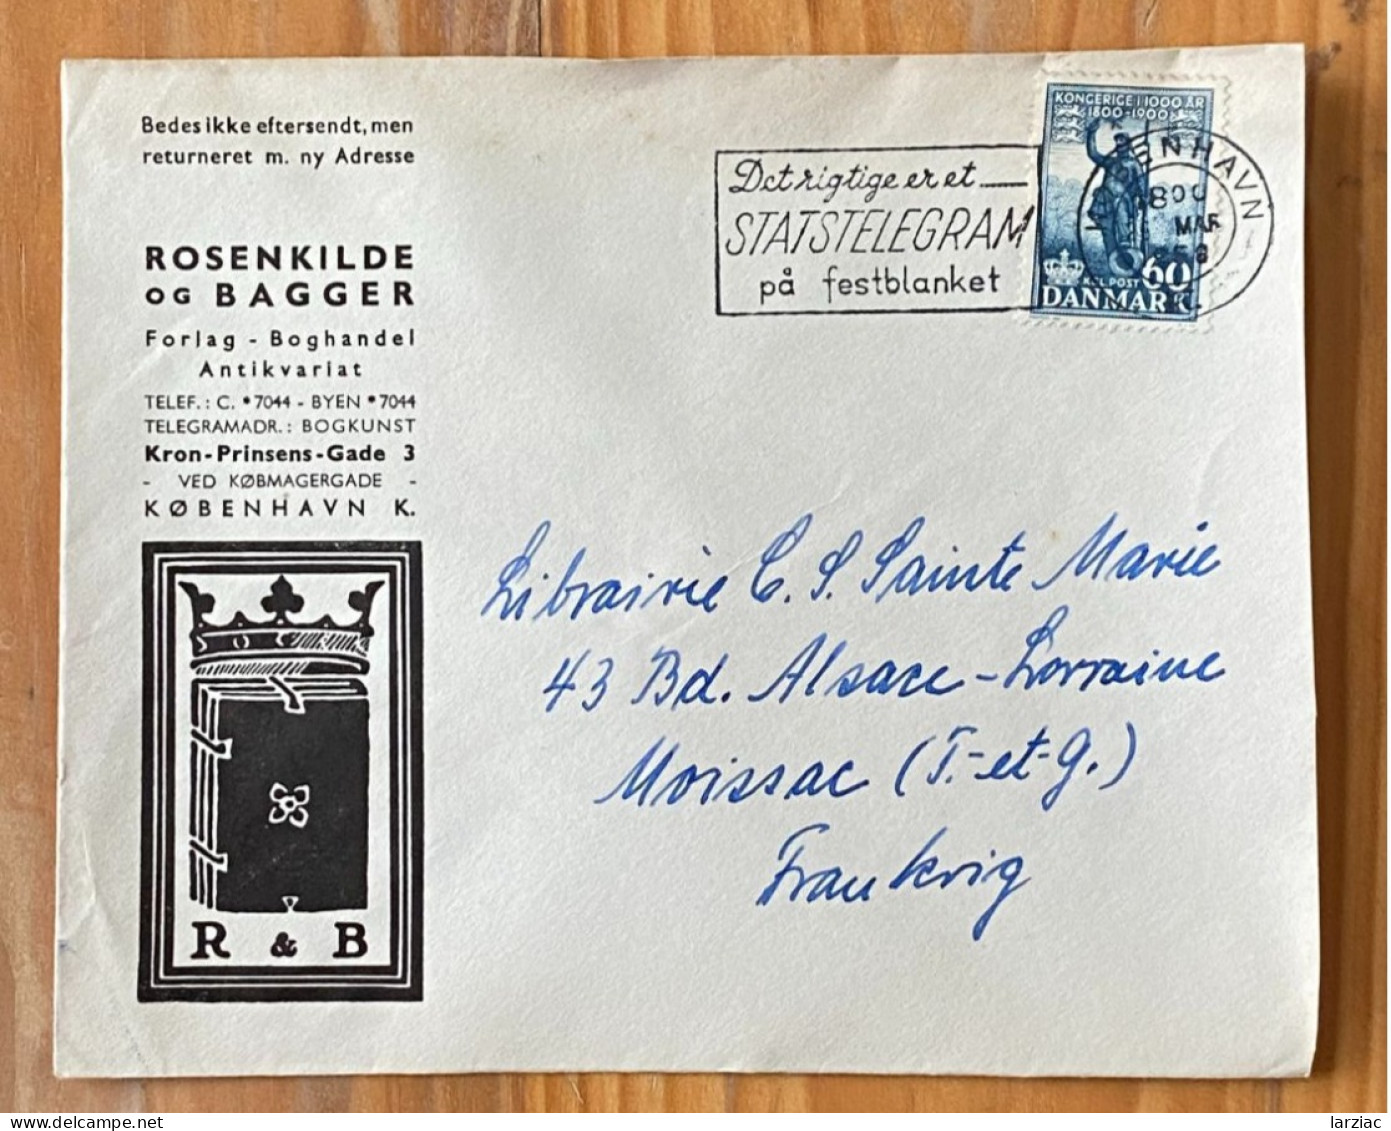 Bedes ikke eftersendt, men
returneret m. ny Adresse
ROSENKILDE
OG BAGGER
Forlag - Boghandel
Antikvariat
TELEF.: C. *7044 - BYEN *7044
TELEGRAMADR.: BOGKUNST
Kron-Prinsens-Gade 3
- VED KØBMAGERGADE -
KØBENHAVN K.
R & B
Det rigtige er et
STATSTELEGRAM
på festblanket
KONGERIGE I 1000 ÅR
1800-1900
60
DANMARK
MAR
Librairie C. S. Sainte Marie
43 Bd. Alsace-Lorraine
Moissac (T.-et-G.)
Frankrig
larziac